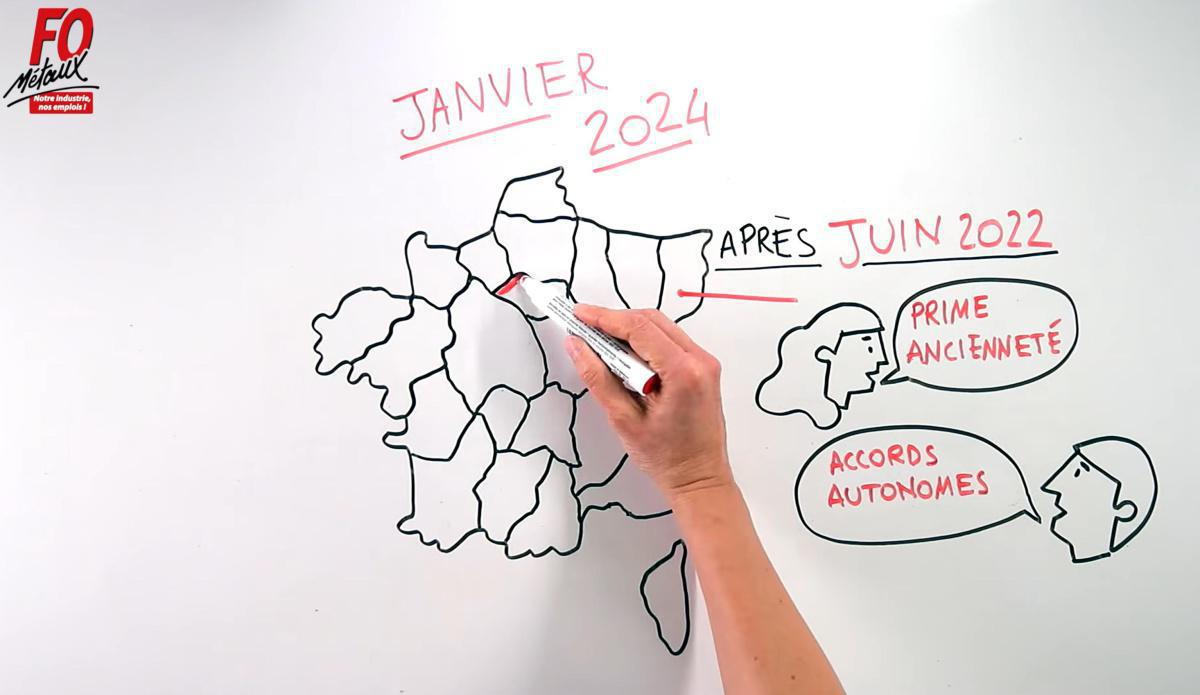 FO
Métaux
Notre industrie,
nos emplois !
JANVIER
2024
APRÈS JUIN 2022
PRIME
ANCIENNETÉ
ACCORDS
AUTONOMES